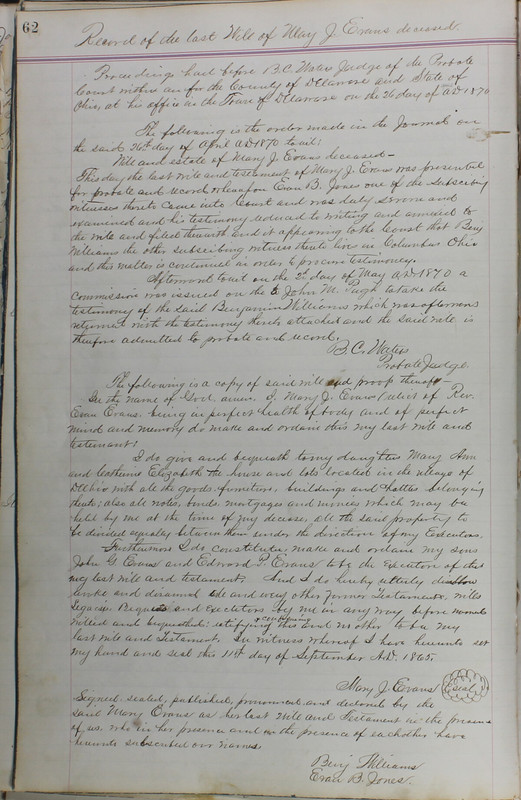 62
Record of the last Will of Mary J. Evans deceased.
Proceedings had before B.C. Waters Judge of the Probate
Court within and for the County of Delaware and State of
Ohio, at his office in the Town of Delaware on the 26 day of A.D. 1870
The following is the order made in the Journal on
the said 26th day of April A.D. 1870 to wit:
Will and estate of Mary J. Evans deceased—
This day the last will and testament of Mary J. Evans was presented
for probate and record whereupon Evan B. Jones one of the subscribing
witnesses thereto came into Court and was duly sworn and
examined and his testimony reduced to writing and annexed to
the will and filed therewith and it appearing to the Court that Benj
Williams the other subscribing witness thereto lives in Columbus Ohio
and this matter is continued in order to procure testimony.
Afterward to wit on the 2d day of May A.D. 1870 a
commission was issued on the to John M. Pugh to take the
testimony of the said Benjamin Williams which was afterward
returned with the testimony thereto attached and the said will is
therefore admitted to probate and record.
B.C. Waters
Probate Judge.
The following is a copy of said will and proof thereof
In the name of God, amen. I, Mary J. Evans relict of Rev.
Evan Evans, being in perfect health of body and of perfect
mind and memory do make and ordain this my last will and
testament:
I do give and bequeath to my daughters Mary Ann
and Catharine Elizabeth the house and lots located in the village of
with all the goods, furniture, buildings and chattles belonging
thereto; also all notes, bonds, mortgages and monies which may be
held by me at the time of my decease, all the said property to
be divided equally between them under the direction of my Executors.
Furthermore I do constitute, make and ordain my sons
John G. Evans and Edward P. Evans to be the executors of this
my last will and testament. And I do hereby utterly disallow
revoke and disannul all and every other former Testaments, wills
Legacies, Bequests and executors by me in any way before named
willed and bequeathed: ratifying & confirming this and no other to be my
last will and Testament. In witness whereof I have hereunto set
my hand and seal this 11th day of September A.D. 1865.
Mary J. Evans seal
Signed, sealed, published, pronounced and declared by the
said Mary Evans as her last will and Testament in the presence
of us, who in her presence and in the presence of each other have
hereunto subscribed our names.
Benj Williams
Evan B. Jones.